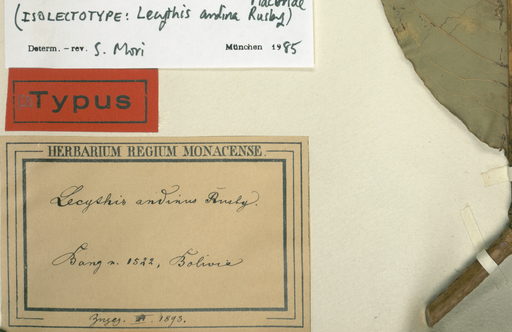 (ISOLECTOTYPE: Lecythis andina Rusby)
Determ. - rev. S. Mori München 1985
Typus
HERBARIUM REGIUM MONACENSE.
Lecythis andinus Rusby.
Bang n. 1522, Bolivia
1893.